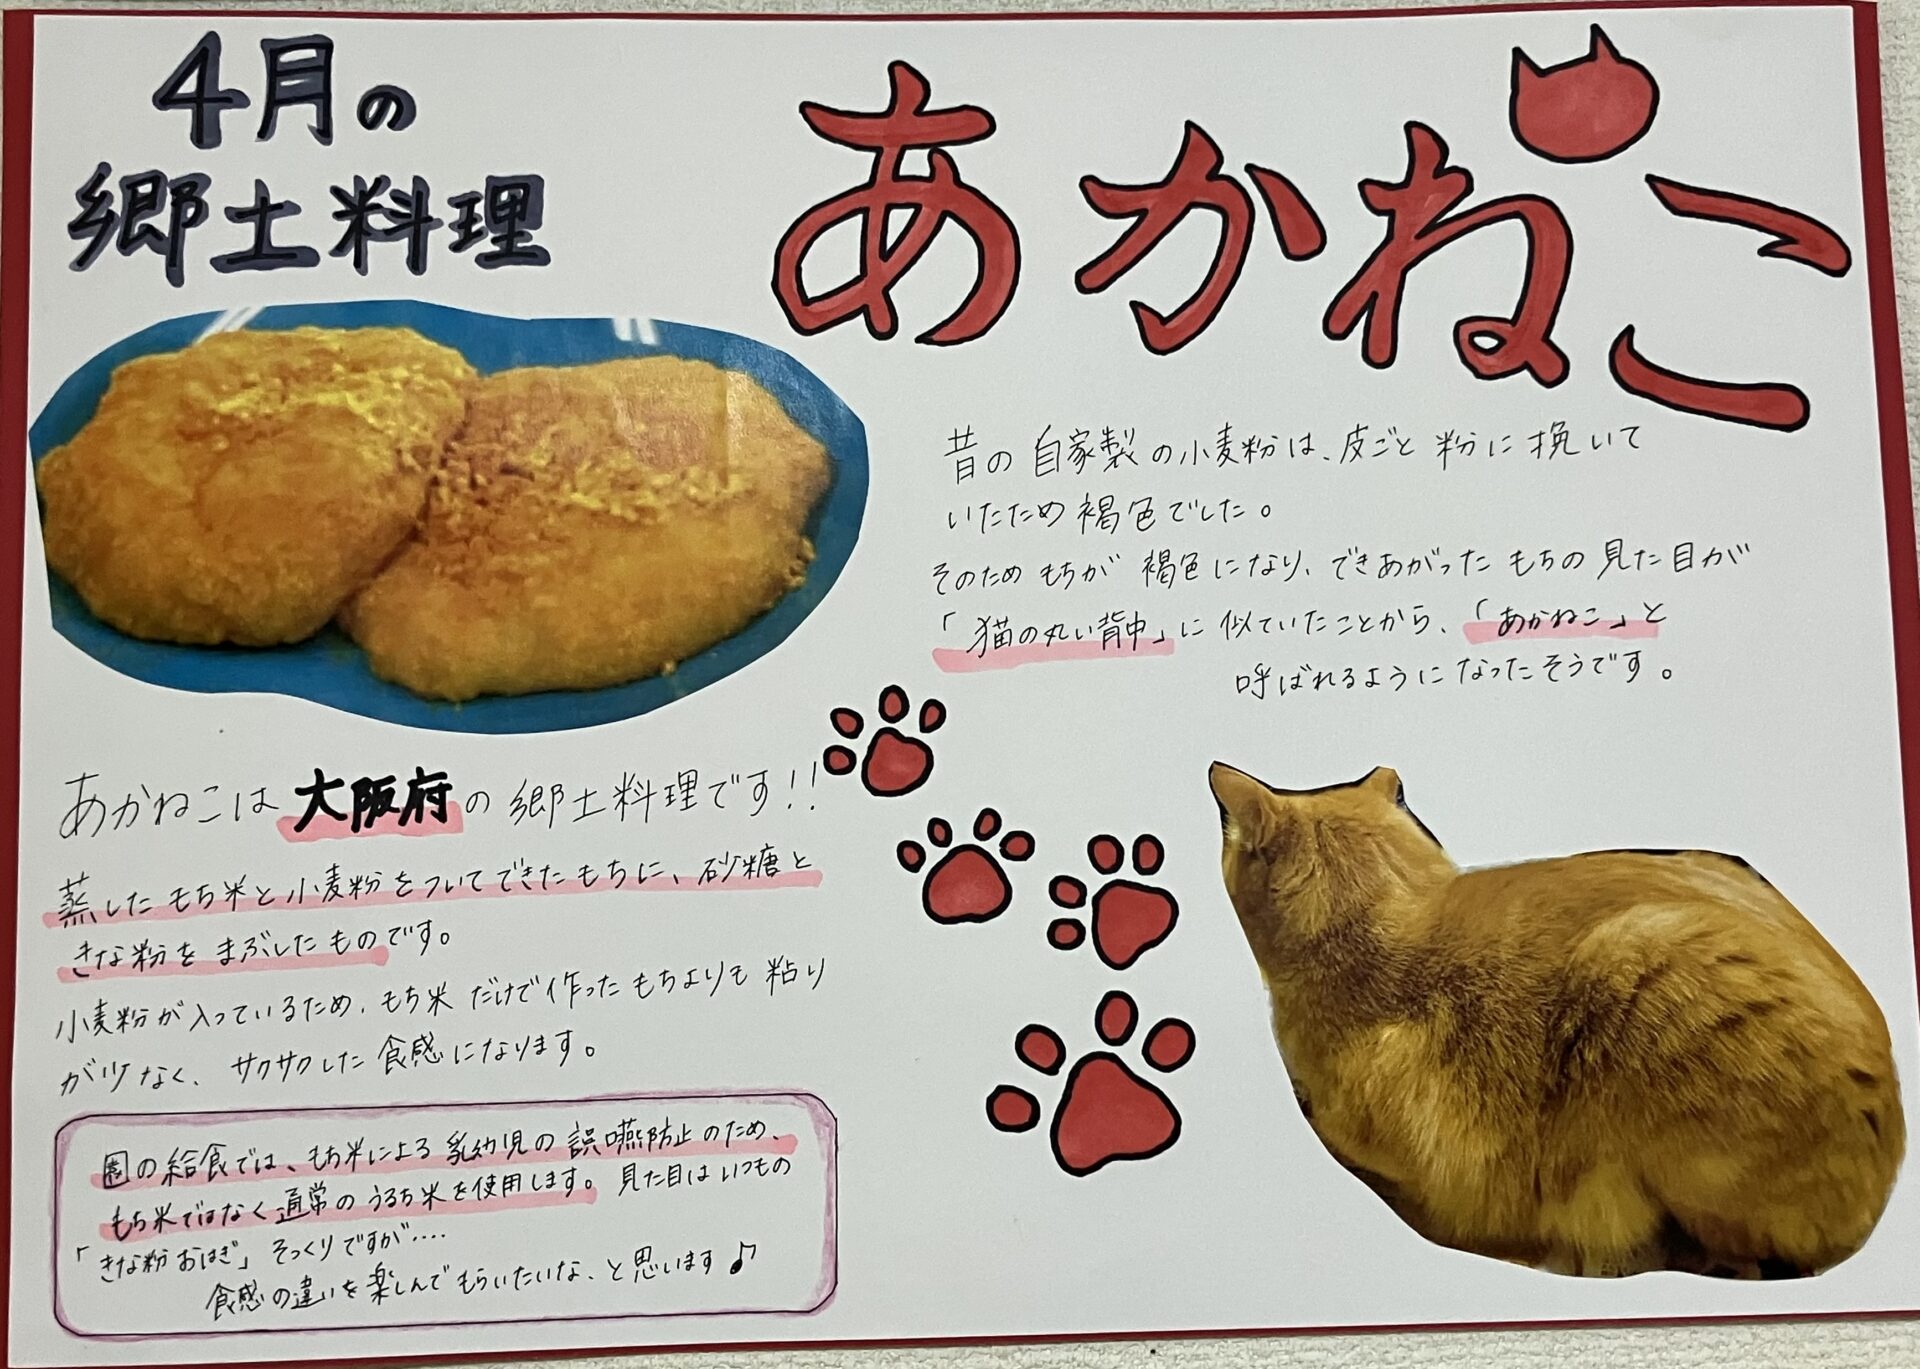 4月の
郷土料理
あかねこ
昔の自家製の小麦粉は、皮ごと粉に挽いて
いたため褐色でした。
そのためもちが褐色になり、できあがったもちの見た目が
「猫の丸い背中」に似ていたことから、「あかねこ」と
呼ばれるようになったそうです。
あかねこは大阪府の郷土料理です!!
蒸したもち米と小麦粉をついてできたもちに、砂糖と
きな粉をまぶしたものです。
小麦粉が入っているため、もち米だけで作ったもちよりも粘り
が少なく、サクサクした食感になります。
園の給食では、もち米による乳幼児の誤嚥防止のため、
もち米ではなく通常のうるち米を使用します。見た目はいつもの
「きな粉おはぎ」そっくりですが‥‥
食感の違いを楽しんでもらいたいな、と思います♪